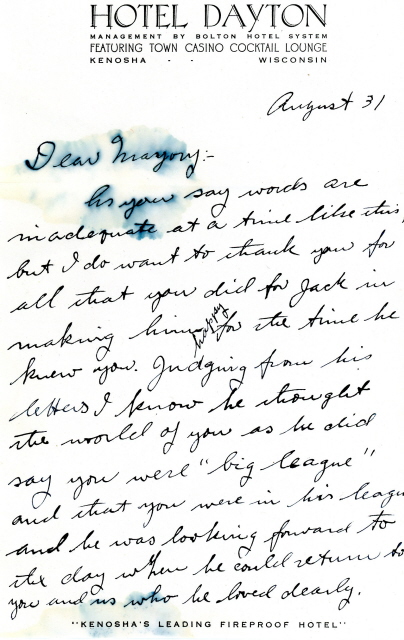 HOTEL DAYTON
MANAGEMENT BY BOLTON HOTEL SYSTEM
FEATURING TOWN CASINO COCKTAIL LOUNGE
KENOSHA - - WISCONSIN
August 31
Dear Maryory:-
As you say words are
inadequate at a time like this,
but I do want to thank you for
all that you did for Jack in
making him happy for the time he
knew you. Judging from his
letters I know he thought
the world of you as he did
say you were "big league"
and that you were in his leagu
and he was looking forward to
the day when he could return to
you and us who he loved dearly.
"KENOSHA'S LEADING FIREPROOF HOTEL"